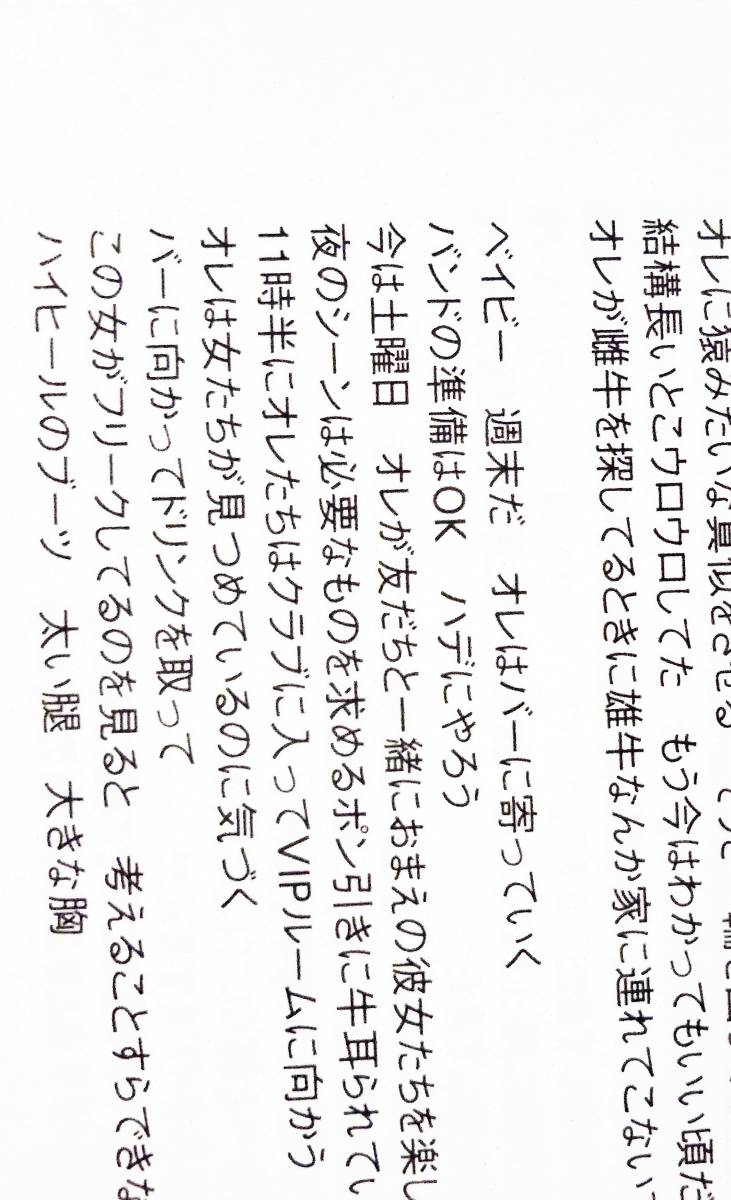 オレに猿みたいな真似をさせる
結構長いとこウロウロしてた　もう今はわかってもいい頃だ
オレが雌牛を探してるときに雄牛なんか家に連れてこない
ベイビー　週末だ　オレはバーに寄っていく
バンドの準備はOK　ハデにやろう
今は土曜日　オレが友だちと一緒におまえの彼女たちを楽し
夜のシーンは必要なものを求めるポン引きに牛耳られてい
11時半にオレたちはクラブに入ってVIPルームに向かう
オレは女たちが見つめているのに気づく
バーに向かってドリンクを取って
この女がフリークしてるのを見ると　考えることすらできな
ハイヒールのブーツ　太い腿　大きな胸